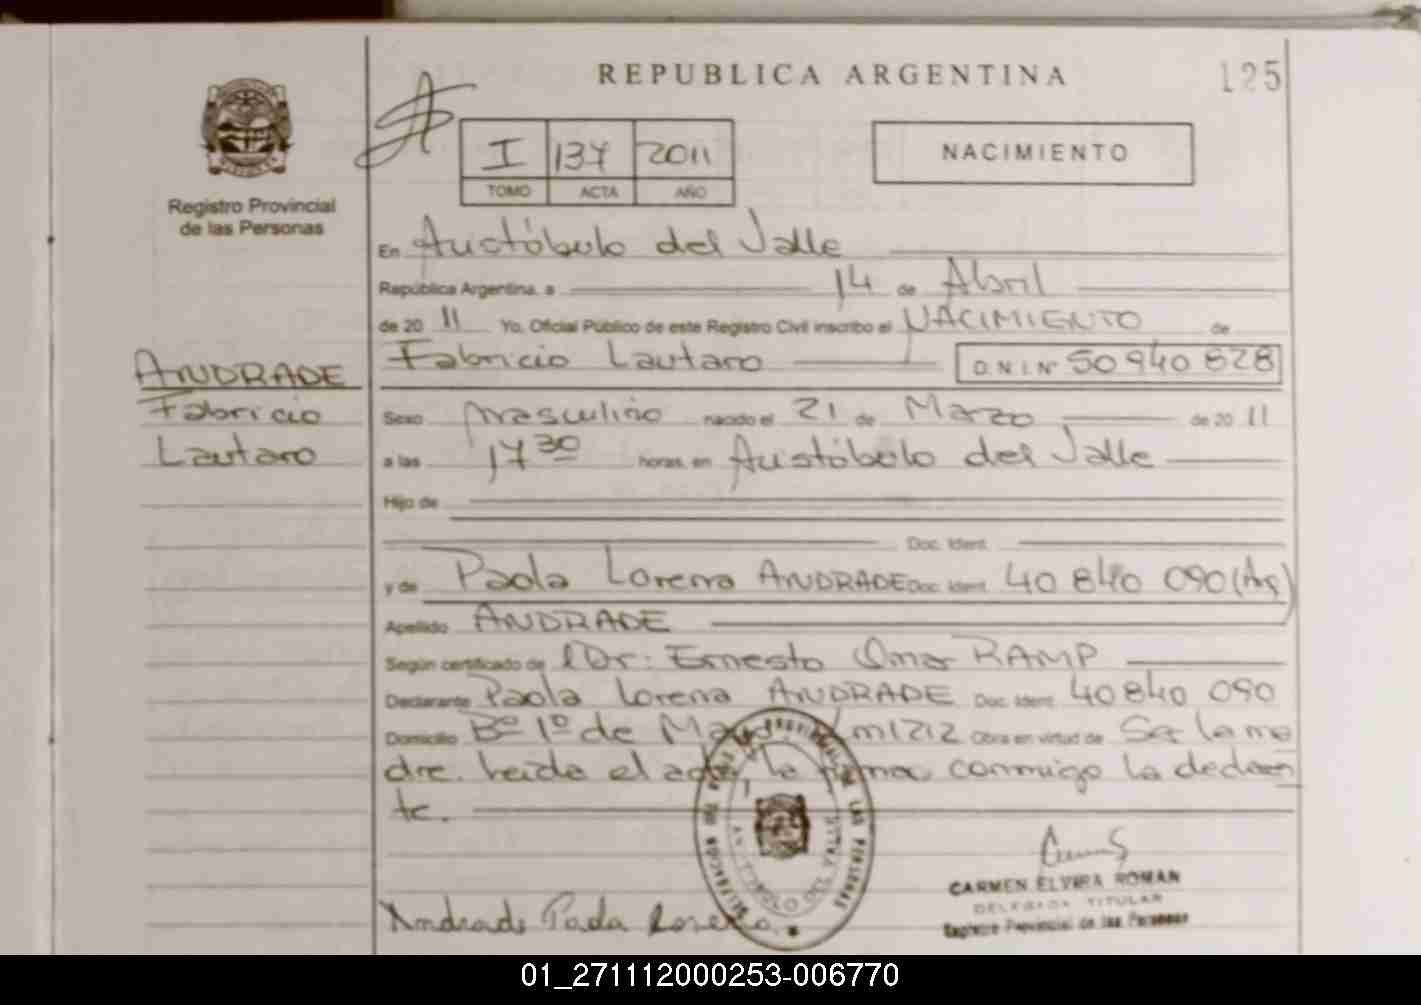 REPUBLICA ARGENTINA
125
I 137 2011
TOMO ACTA AÑO
NACIMIENTO
Registro Provincial
de las Personas
En Aristóbulo del Valle
República Argentina, a 14 de Abril
de 20 11 Yo, Oficial Público de este Registro Civil inscribo el NACIMIENTO de
Fabricio Lautaro D.N.I. Nº 50 940 828
ANDRADE
Fabricio
Lautaro
Sexo masculino nacido el 21 de Marzo de 20 11
a las 17 30 horas, en Aristóbulo del Valle
Hijo de
Doc. Ident.
y de Paola Lorena ANDRADE Doc. Ident. 40 840 090 (Arg)
Apellido ANDRADE
Según certificado de Dr: Ernesto Omar RAMP
Declarante Paola Lorena ANDRADE Doc. Ident. 40 840 090
Domicilio Bº 1º de Mayo, km 1212 Obra en virtud de Ser la ma
dre. Leida el acta, la firma conmigo la declaran
te.
Andrade Paola Lorena
CARMEN ELVIRA ROMAN
DELEGADA TITULAR
Registro Provincial de las Personas
01_271112000253-006770